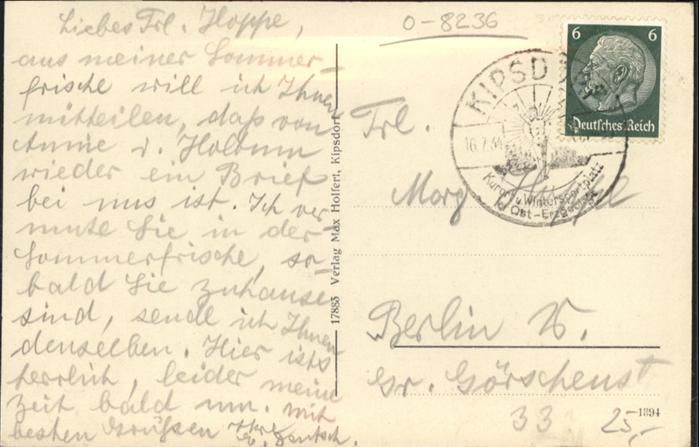 Liebes Frl. Hoppe,
aus meiner Sommer-
frische will ich Ihnen
mitteilen, daß von
Annie v. Holbum
wieder ein Brief
bei uns ist. Ich ver-
mute Sie in der
Sommerfrische, so-
bald Sie zuhause
sind, sende ich Ihnen
denselben. Hier ists
herrlich, leider meine
Zeit bald um. Mit
besten Grüßen Ihre
E. Jentsch.
17883 Verlag Max Holfert, Kipsdorf
0-8236
6 6
Deutsches Reich
KIPSDORF
16.7.34
Kurort u. Wintersportplatz
i. Ost-Erzgebirge
Frl.
Marg. Hoppe
Berlin W.
Gr. Görschenst
33 25,-
1894